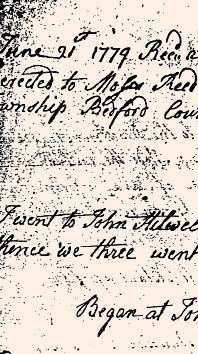 June 21st 1779 Recd a
erected to Moses Reed
wnship Bedford Coun
I went to John Stilwel
thence we three went
Began at